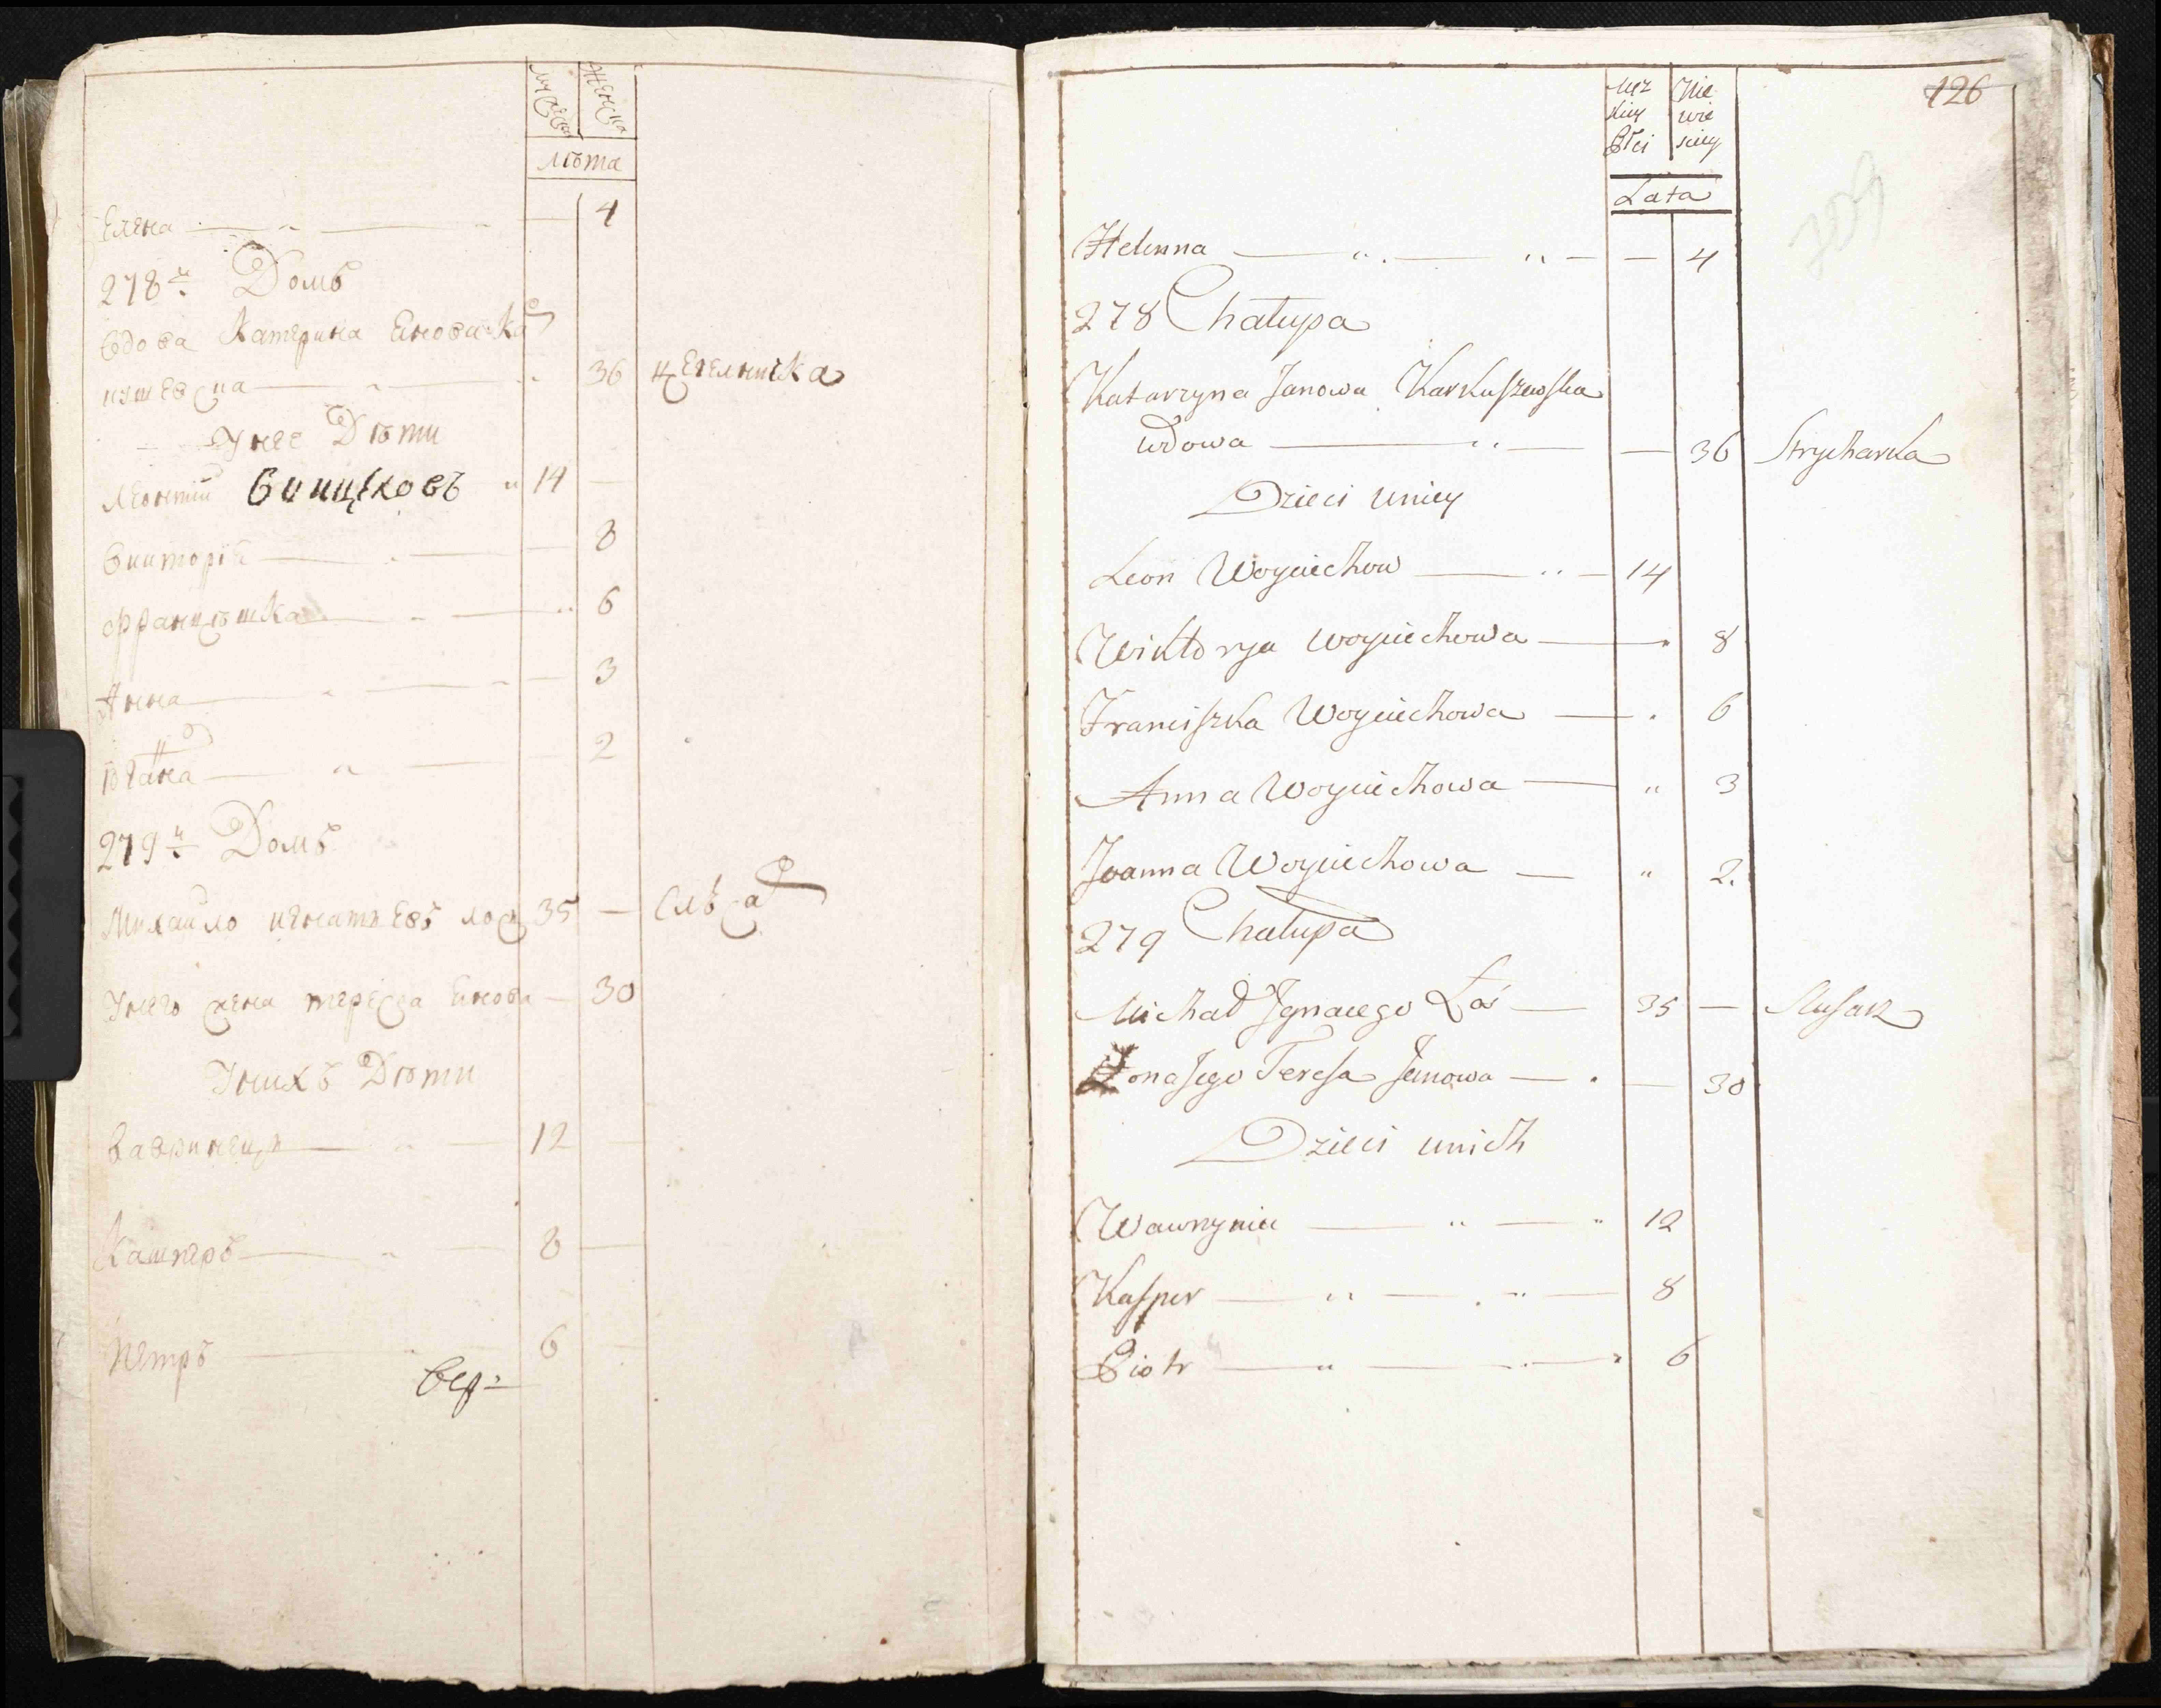 мужеска
женска
лѣта
Елена 4
278й Домъ
вдова Катерина Янова Кар
кушевска 36 цегелничка
У нее Дѣти
Леонтий 14
Виктория 8
Францѣшка 6
Анна 3
Іоанна 2
279й Домъ
Михайло игнатьевъ лось 35 — слѣсар
У него жена тереса Янова — 30
У нихъ Дѣти
Вавринецъ 12 —
Кашперъ 8 —
Петръ 6
Вер:
126
309
męz
kiey
Płci
Nie
wie
sciey
Lata
Helenna — 4
278 Chałupa
Katarzyna Janowa Karkuszewska
wdowa — 36 Strycharka
Dzieci u niey
Leon Woyciechow 14
Wiktorya Woyciechowa 8
Franciszka Woyciechowa 6
Anna Woyciechowa " 3
Joanna Woyciechowa — " 2.
279 Chałupa
Michał Ignacego Łoś — 35 — Slusarz
Zona Jego Teresa Janowa — 30
Dzieci u nich
Wawrzyniec 12
Kasper 8
Piotr 6